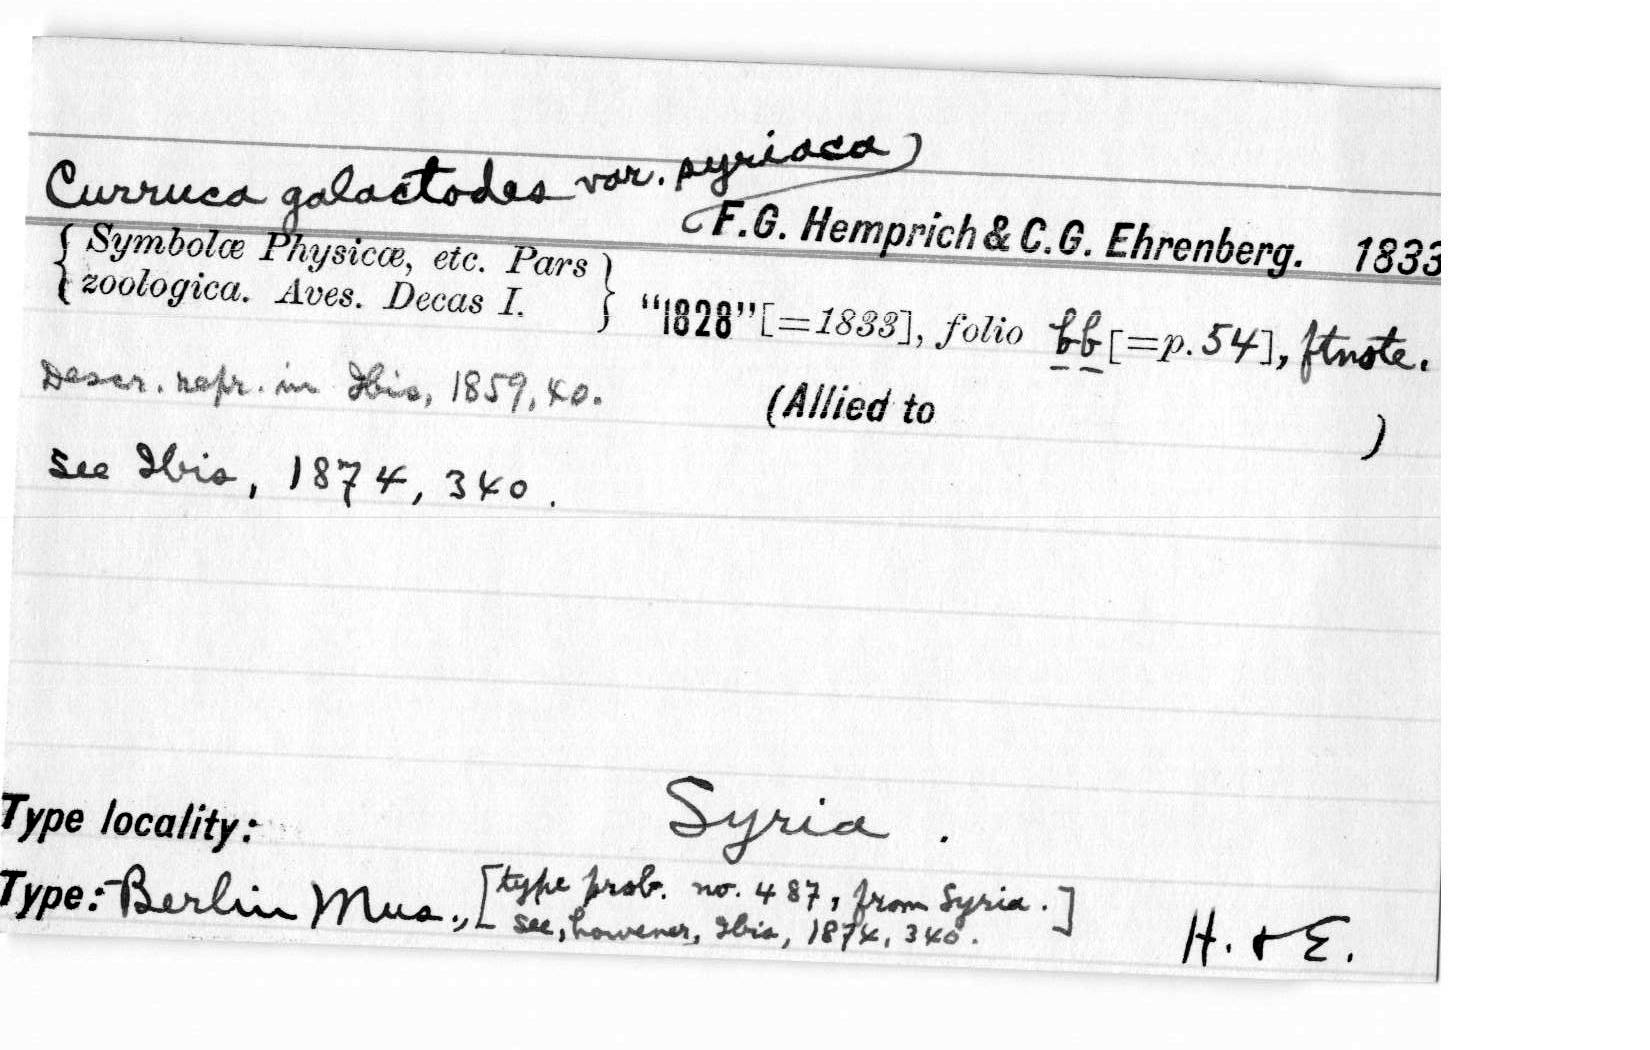 Curruca galactodes var. syriaca)
F.G. Hemprich & C.G. Ehrenberg. 1833
{ Symbolæ Physicæ, etc. Pars
zoologica. Aves. Decas I. } "1828" [=1833], folio bb [=p. 54], ftnote.
Descr. repr. in Ibis, 1859, 40.
(Allied to )
See Ibis, 1874, 340.
Type locality: Syria.
Type: Berlin Mus., [type prob. no. 487, from Syria.
See, however, Ibis, 1874, 340.]
H. & E.